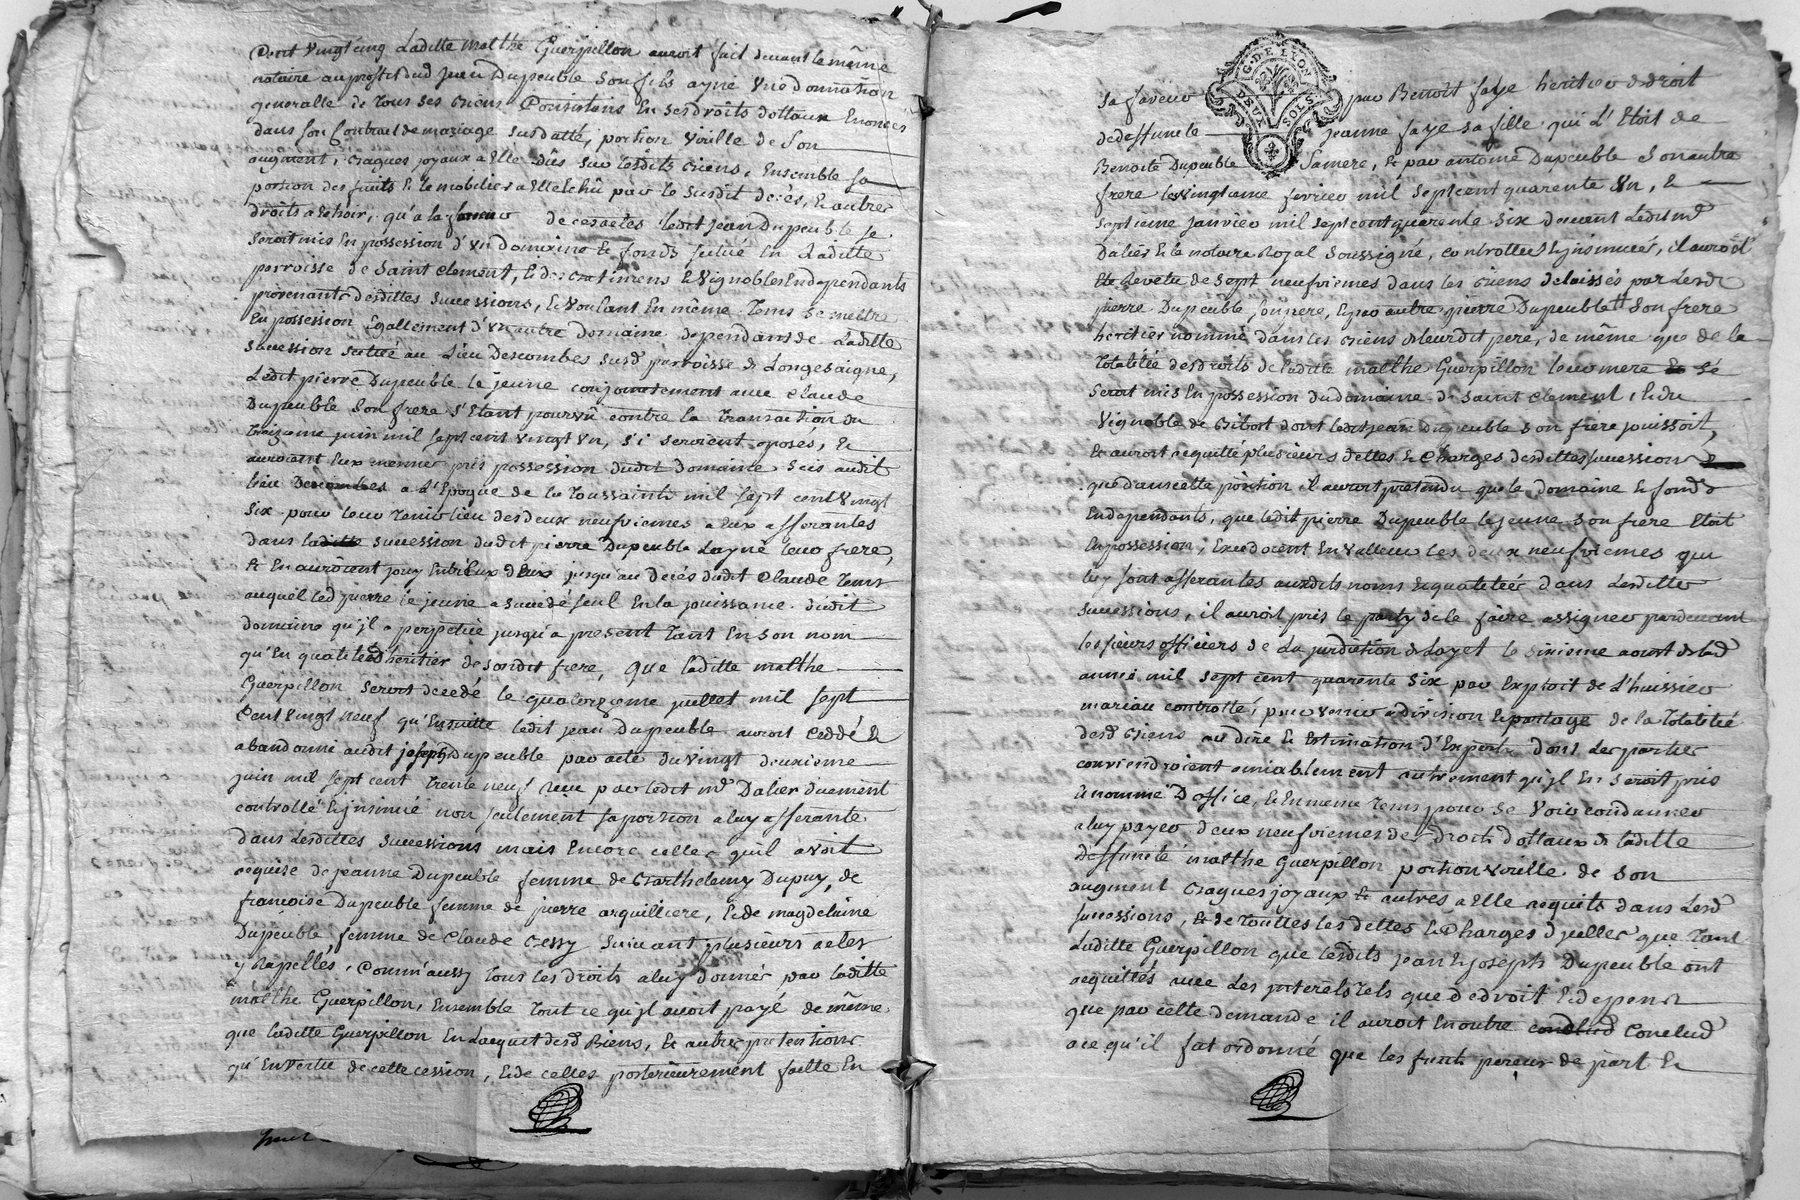 Cent vingt cinq Laditte Malthe Guerpillon auroit fait devant le même
notaire au proffit dud Jean Dupeuble son fils ayné une donnation
generalle de tous ses biens Consistans En ses droits dottaux Enoncés
dans son Contract de mariage susdatté, portion virille de son
augment, bagues joyaux a Elle dûs sur lesdits biens, Ensemble sa
portion des fruits & le mobilier a Elle Echû par le susdit decés, & autres
droits a Echoir, qu'a la faveur de ces actes ledit Jean Dupeuble se
seroit mis En possession d'un domaine & fonds scitué En Laditte
parroisse de Saint Clement, & des batimens & vignobles Endependants
provenants desdittes successions, & voulant En même tems se mettre
En possession Egallement d'un autre domaine dependant de Laditte
succession scitué au Lieu Descombes susd parroisse de Longesaigne,
Ledit pierre Dupeuble le jeune conjointement avec Claude
Dupeuble son frere s'Etant pourvû contre la transaction du
treizieme juin mil sept cent vingt un, s'i seroient oposés, &
auroient Eux mesmes pris possession dudit domaine scis audit
lieu Descombes a L'Epoque de la Toussaints mil sept cent vingt
six pour leur tenir lieu des deux neufviemes a Eux afferantes
dans laditte succession dudit pierre Dupeuble Layné leur frere,
& En auroient jouy Entr'Eux deux jusqu'au decés dudit Claude tems
auquel led pierre le jeune a succedé seul En la jouissance dudit
domaine qu'jl a perpetué jusqu'a present tant En son nom
qu'En qualité d'heritier de sondit frere, que laditte malthe
Guerpillon seroit decedé le quatorzieme juillet mil sept
Cent vingt neuf qu'Ensuitte ledit Jean Dupeuble auroit Ceddé &
abandonné audit joseph Dupeuble par acte du vingt deuxieme
juin mil sept cent trente neuf reçu par ledit me Dalier duement
controllé & jnsinué non seulement sa portion a luy afferante
dans Lesdittes successions mais Encore celles qu'il avoit
acquise de jeanne Dupeuble femme de Barthelemy Dupuy, de
françoise Dupeuble femme de pierre arquilliere, & de magdelaine
Dupeuble, femme de Claude Bessy suivant plusieurs actes
y Rappellés, Comm'aussy tous les droits a luy donnés par laditte
malthe Guerpillon, Ensemble tout ce qu'jl avoit payé de même
que laditte Guerpillon En Lacquit desd Biens, & autres pretentions
qu'En vertu de cette cession, & de celles posterieurement faitte En
sa faveur par Benoît faye heritier de droit
de deffunte jeanne faye sa fille qui L'Etoit de
Benoite Dupeuble sa mere, & par antoine Dupeuble son autre
frere les vingtieme fevrier mil sept cent quarente un, &
septieme janvier mil sept cent quarente six devant Ledit me
Dalier & le notaire Royal soussigné, controllées & jnsinuées, il auroit
Eté Revetu de sept neufviemes dans les biens delaissés par Lesd
pierre Dupeuble son pere, & par autre pierre Dupeuble son frere
heritier nommé dans les biens de leurdit pere, de même que de la
totalitée des droits de laditte malthe Guerpillon leur mere sé
seroit mis En possession du domaine de Saint Clement, & du
vignoble de Bibost dont ledit jean Dupeuble son frere jouissoit,
& auroit acquitté plusieurs dettes & Charges desdittes succession
que dans cette position il auroit pretendu que le domaine & fonds
Endependants, que ledit pierre Dupeuble le jeune son frere Etoit
En possession, Excedoient En valleur les deux neufviemes qui
luy sont afferantes auxdits noms & qualitée dans Lesdittes
successions, il auroit pris le party de le faire assigner pardevant
les sieurs officiers de La jurdiction de Loyet le sixieme aoust de lad
année mil sept cent quarente six par Exploit de L'huissier
mariau controllé, pour venir a division & partage de la totalité
desd Biens au dire & Estimation d'Experts dont les parties
conviendroient amiablement autrement qu'jl En seroit pris
& nommé D'office, & En meme tems pour se voir condamner
a luy payer deux neufviemes des droits dottaux de laditte
deffunte malthe Guerpillon portion virille de son
augment bagues joyaux & autres a Elle acquits dans Lesd
successions, & de touttes les dettes & Charges d'jcelles que tant
Laditte Guerpillon que lesdits jean & joseph Dupeuble ont
acquittés avec les jnterets tels que de droit & depens
que par cette demande il auroit En outre Conclud
a ce qu'il fut ordonné que les fruits perçus de part &
G. DE LYON
DEUX SOLS